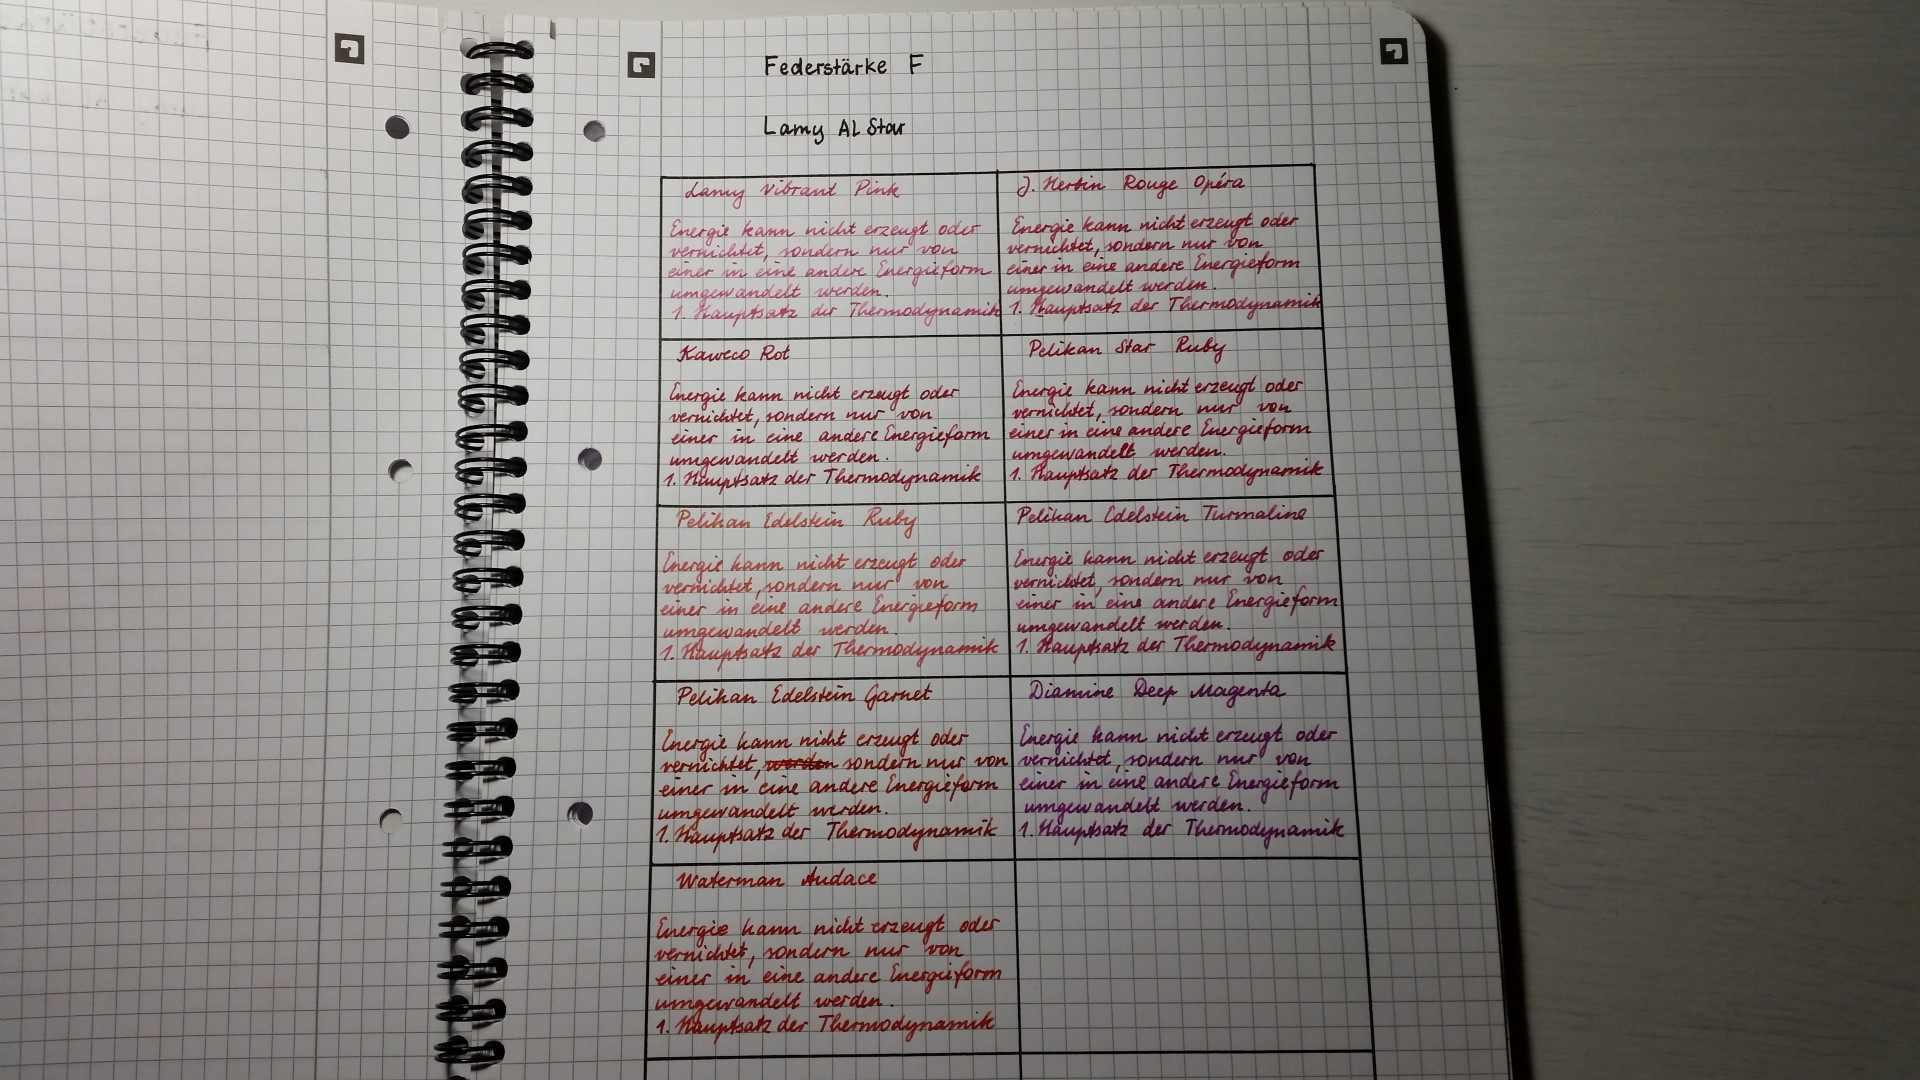 Federstärke F
Lamy AL Star
Lamy Vibrand Pink
Energie kann nicht erzeugt oder
vernichtet, sondern nur von
einer in eine andere Energieform
umgewandelt werden.
1. Hauptsatz der Thermodynamik
J. Herbin Rouge Opéra
Energie kann nicht erzeugt oder
vernichtet, sondern nur von
einer in eine andere Energieform
umgewandelt werden.
1. Hauptsatz der Thermodynamik
Kaweco Rot
Energie kann nicht erzeugt oder
vernichtet, sondern nur von
einer in eine andere Energieform
umgewandelt werden.
1. Hauptsatz der Thermodynamik
Pelikan Star Ruby
Energie kann nicht erzeugt oder
vernichtet, sondern nur von
einer in eine andere Energieform
umgewandelt werden.
1. Hauptsatz der Thermodynamik
Pelikan Edelstein Ruby
Energie kann nicht erzeugt oder
vernichtet, sondern nur von
einer in eine andere Energieform
umgewandelt werden.
1. Hauptsatz der Thermodynamik
Pelikan Edelstein Turmaline
Energie kann nicht erzeugt oder
vernichtet, sondern nur von
einer in eine andere Energieform
umgewandelt werden.
1. Hauptsatz der Thermodynamik
Pelikan Edelstein Garnet
Energie kann nicht erzeugt oder
vernichtet, sondern nur von
einer in eine andere Energieform
umgewandelt werden.
1. Hauptsatz der Thermodynamik
Diamine Deep Magenta
Energie kann nicht erzeugt oder
vernichtet, sondern nur von
einer in eine andere Energieform
umgewandelt werden.
1. Hauptsatz der Thermodynamik
Waterman Audace
Energie kann nicht erzeugt oder
vernichtet, sondern nur von
einer in eine andere Energieform
umgewandelt werden.
1. Hauptsatz der Thermodynamik